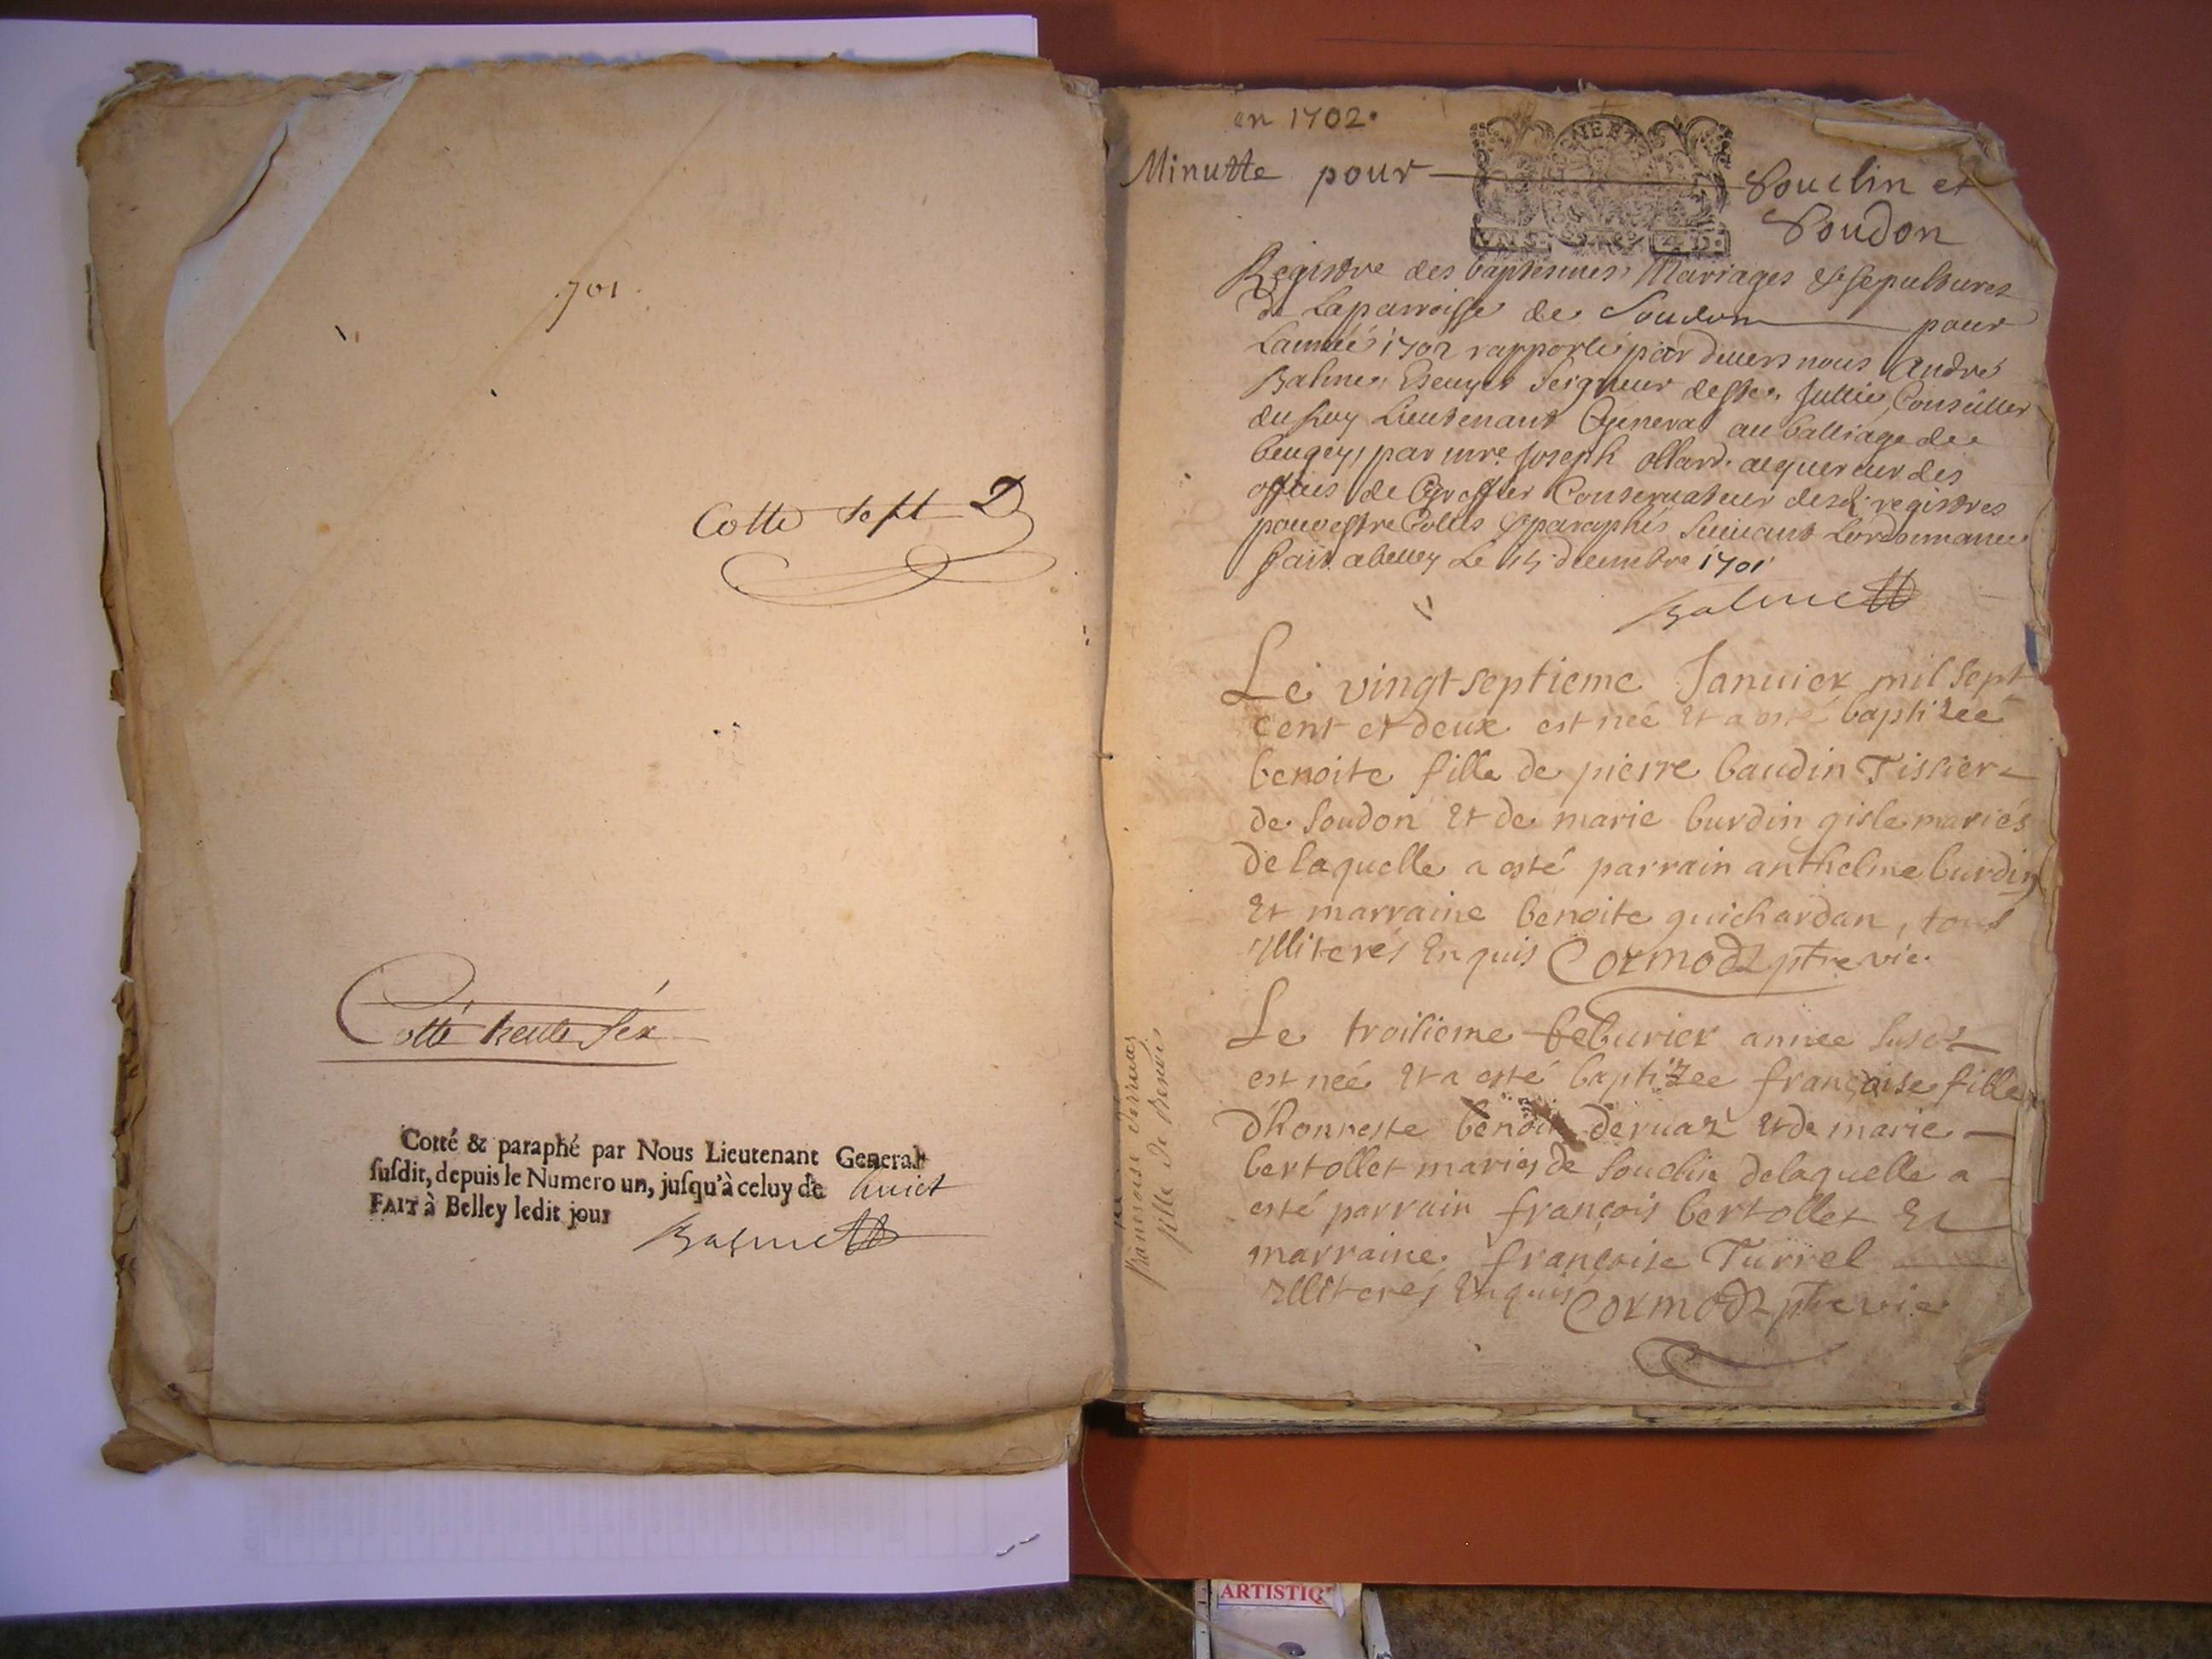 701
Cotte sept
Cotté trente six
Cotté & paraphé par Nous Lieutenant General
susdit, depuis le Numero un, jusqu'à celuy de huict
FAIT à Belley ledit jour
Balme
en 1702.
Minutte pour Souclin et
Soudon
Registre des baptesmes Mariages & sepultures
de Laparroisse de Soudon pour
Lannéé 1702 rapporté par devers nous André
Balme Escuyer Seigneur de Ste. Jullie Conseiller
du Roy Lieutenant General au balliage de
beugey, par mre. Joseph ollard. acquereur des
offices de Greffier Conservateur desd. registres
pour estre Cottés & paraphés suivant Lordonnance
fait a belley Le 15 decembre 1701
Balme
Le vingtseptieme Januier mil sept
cent et deux est neé et a esté baptizeé
benoite fille de pierre baudin Tissier
de soudon et de marie burdin gisle mariés
de laquelle a esté parrain anthelme burdin
et marraine benoite guichardan, tous
illiterés enquis Cormod ptre vic.
Le troisieme feburier année susd.
est neé et a esté baptizee françoise fille
dhonneste benoit deruaz et de marie
bertollet mariés de souclin delaquelle a
esté parrain françois bertollet et
marraine françoise Turrel
illiterés enquis Cormod ptre vic
fille de Benoit
ARTISTIQ